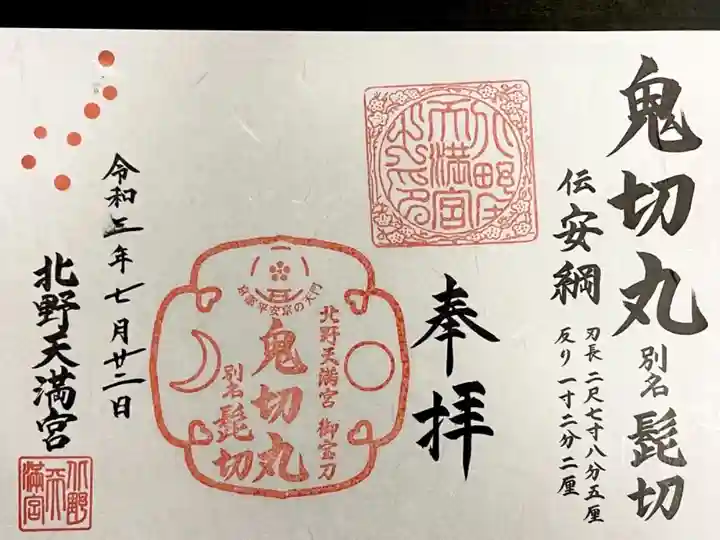 鬼切丸 別名 髭切
伝 安綱
刃長 二尺七寸八分五厘
反り 一寸二分二厘
奉拝
北野天満宮 御宝刀
鬼切丸
別名 髭切
北野天満宮
令和三年七月廿二日
北野天満宮
北野
天
満宮